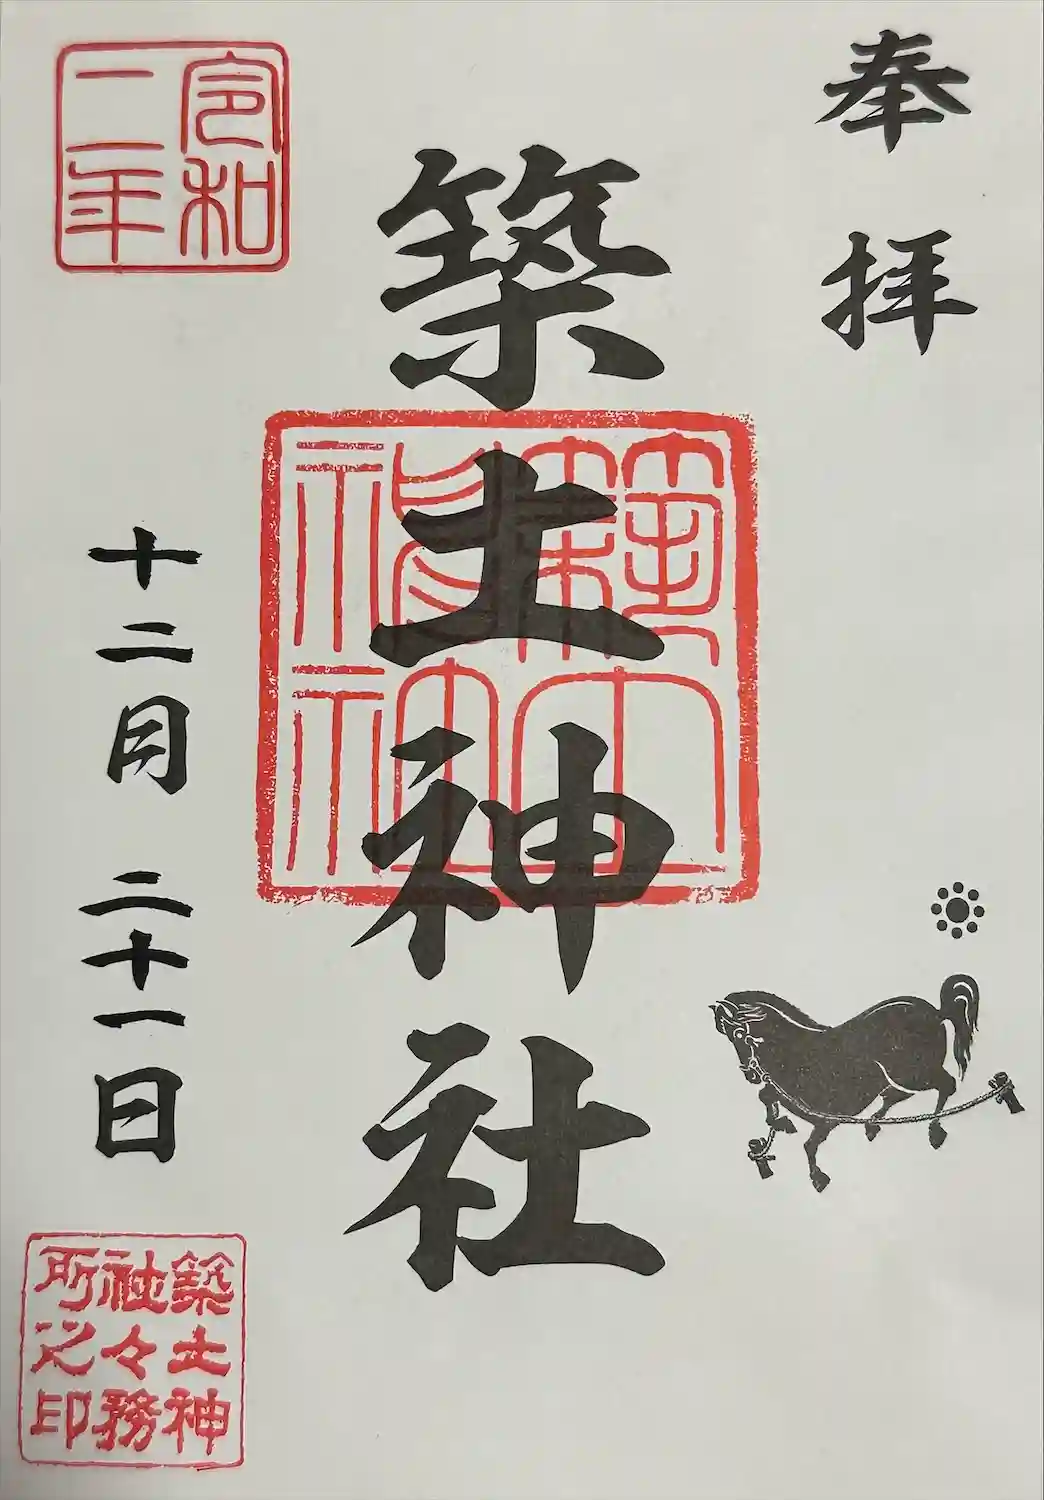 奉拝
築土神社
令和
二年
十二月 二十一日
築土神
社々務
所之印